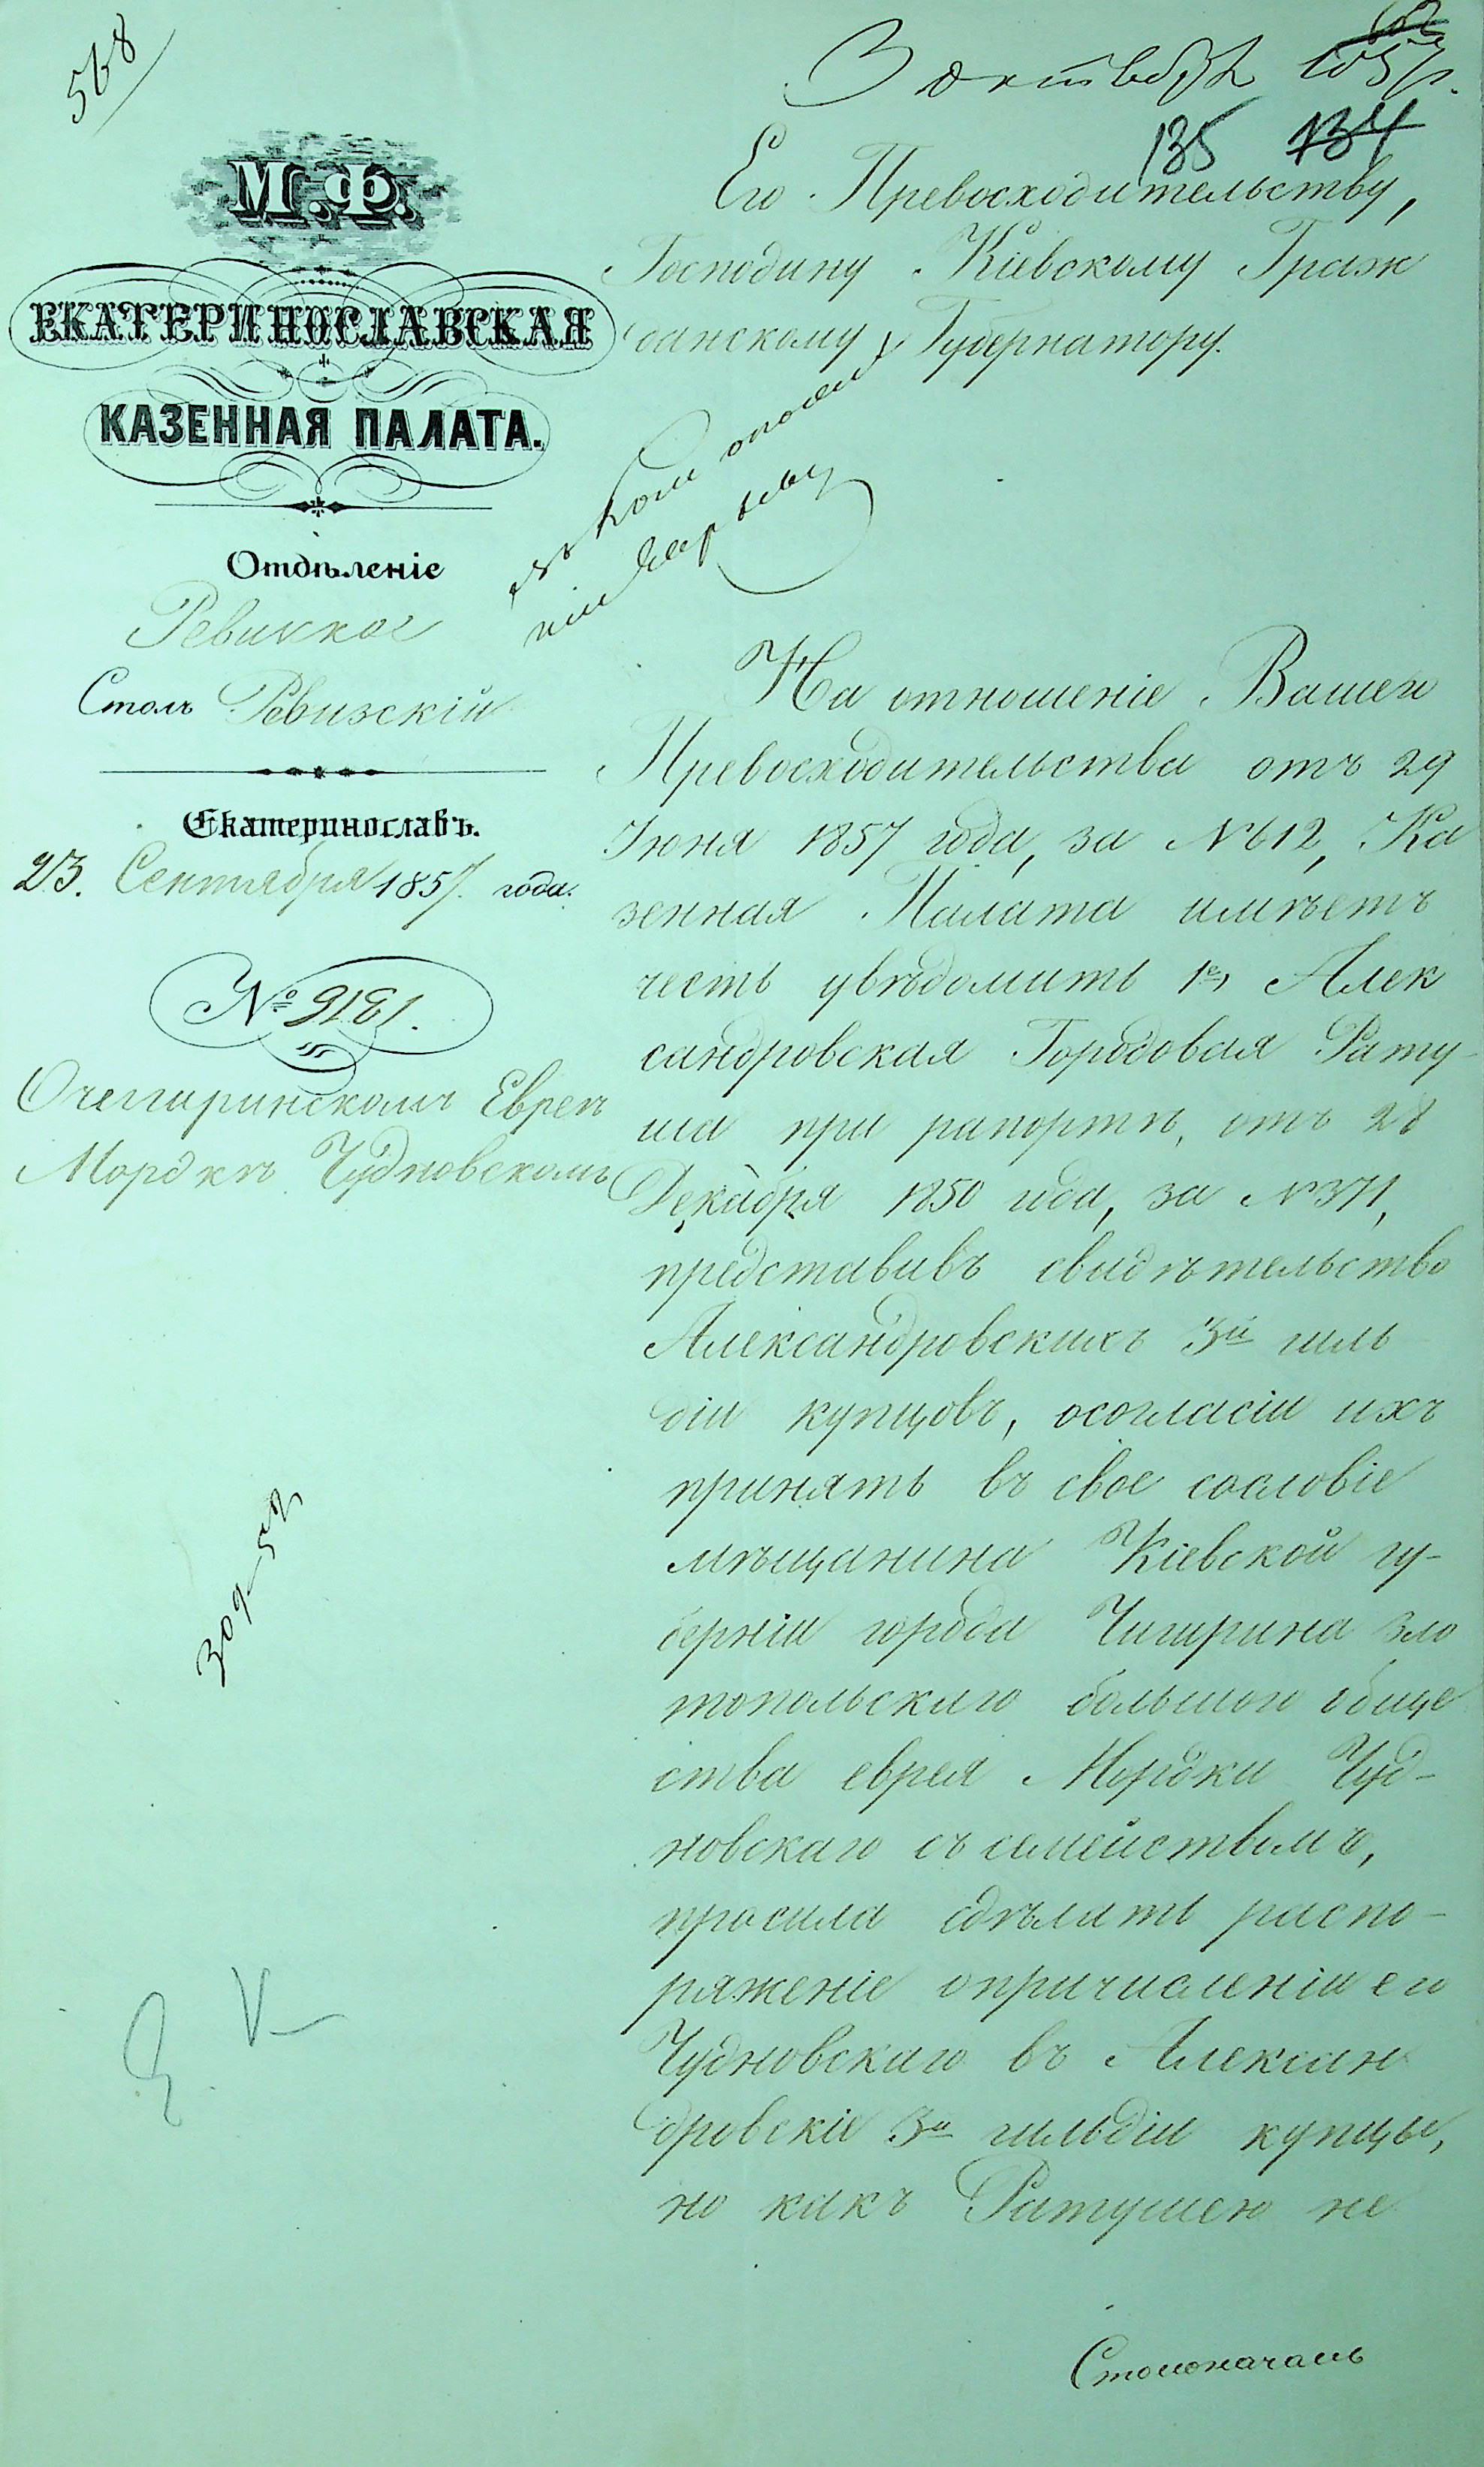 568
3 октября 1857 г.
135 134
М.Ф.
ЕКАТЕРИНОСЛАВСКАЯ
КАЗЕННАЯ ПАЛАТА.
Отдѣленіе
Ревизское
Столъ Ревизскій
Екатеринославъ.
23. Сентября 1857. года.
№ 9181.
О чегиринскомъ Евреѣ
Мордкѣ Чудновскомъ
309-57
Его Превосходительству,
Господину Кіевскому Граж
данскому Губернатору.
На отношеніе Вашего
Превосходительства отъ 29
Іюня 1857 года, за № 612, Ка
зенная Палата имѣетъ
честь увѣдомить 1е, Алек
сандровская Городовая Рату-
ша при рапортѣ, отъ 28
Декабря 1850 года, за № 371,
представивъ свидѣтельство
Александровскихъ 3й гиль
діи купцовъ, осогласіи ихъ
принять въ свое сословіе
мѣщанина Кіевской гу-
берніи города Чигирина Зло
топольскаго большого обще
ства еврея Мордки Чуд-
новскаго съ семействомъ,
просила сдѣлать распо-
ряженіе опричисленіи его
Чудновскаго въ Алексан
дровскіе 3й гильдіи купцы,
но какъ Ратушею не
Столоначаль